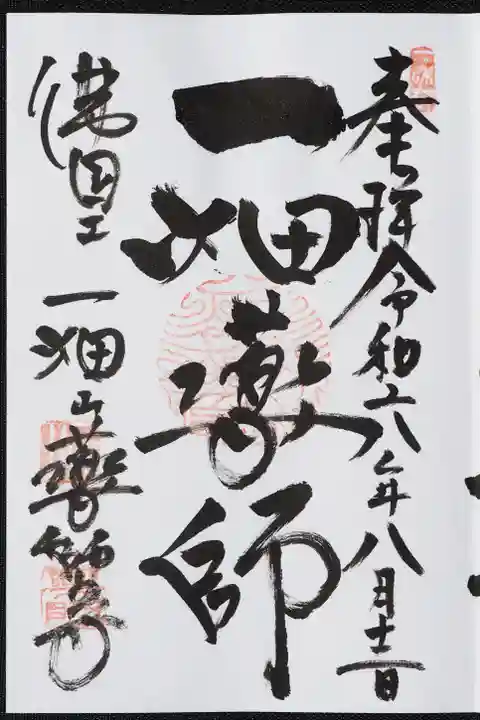 奉拝 令和六年八月 日
一畑薬師
一畑山薬師寺